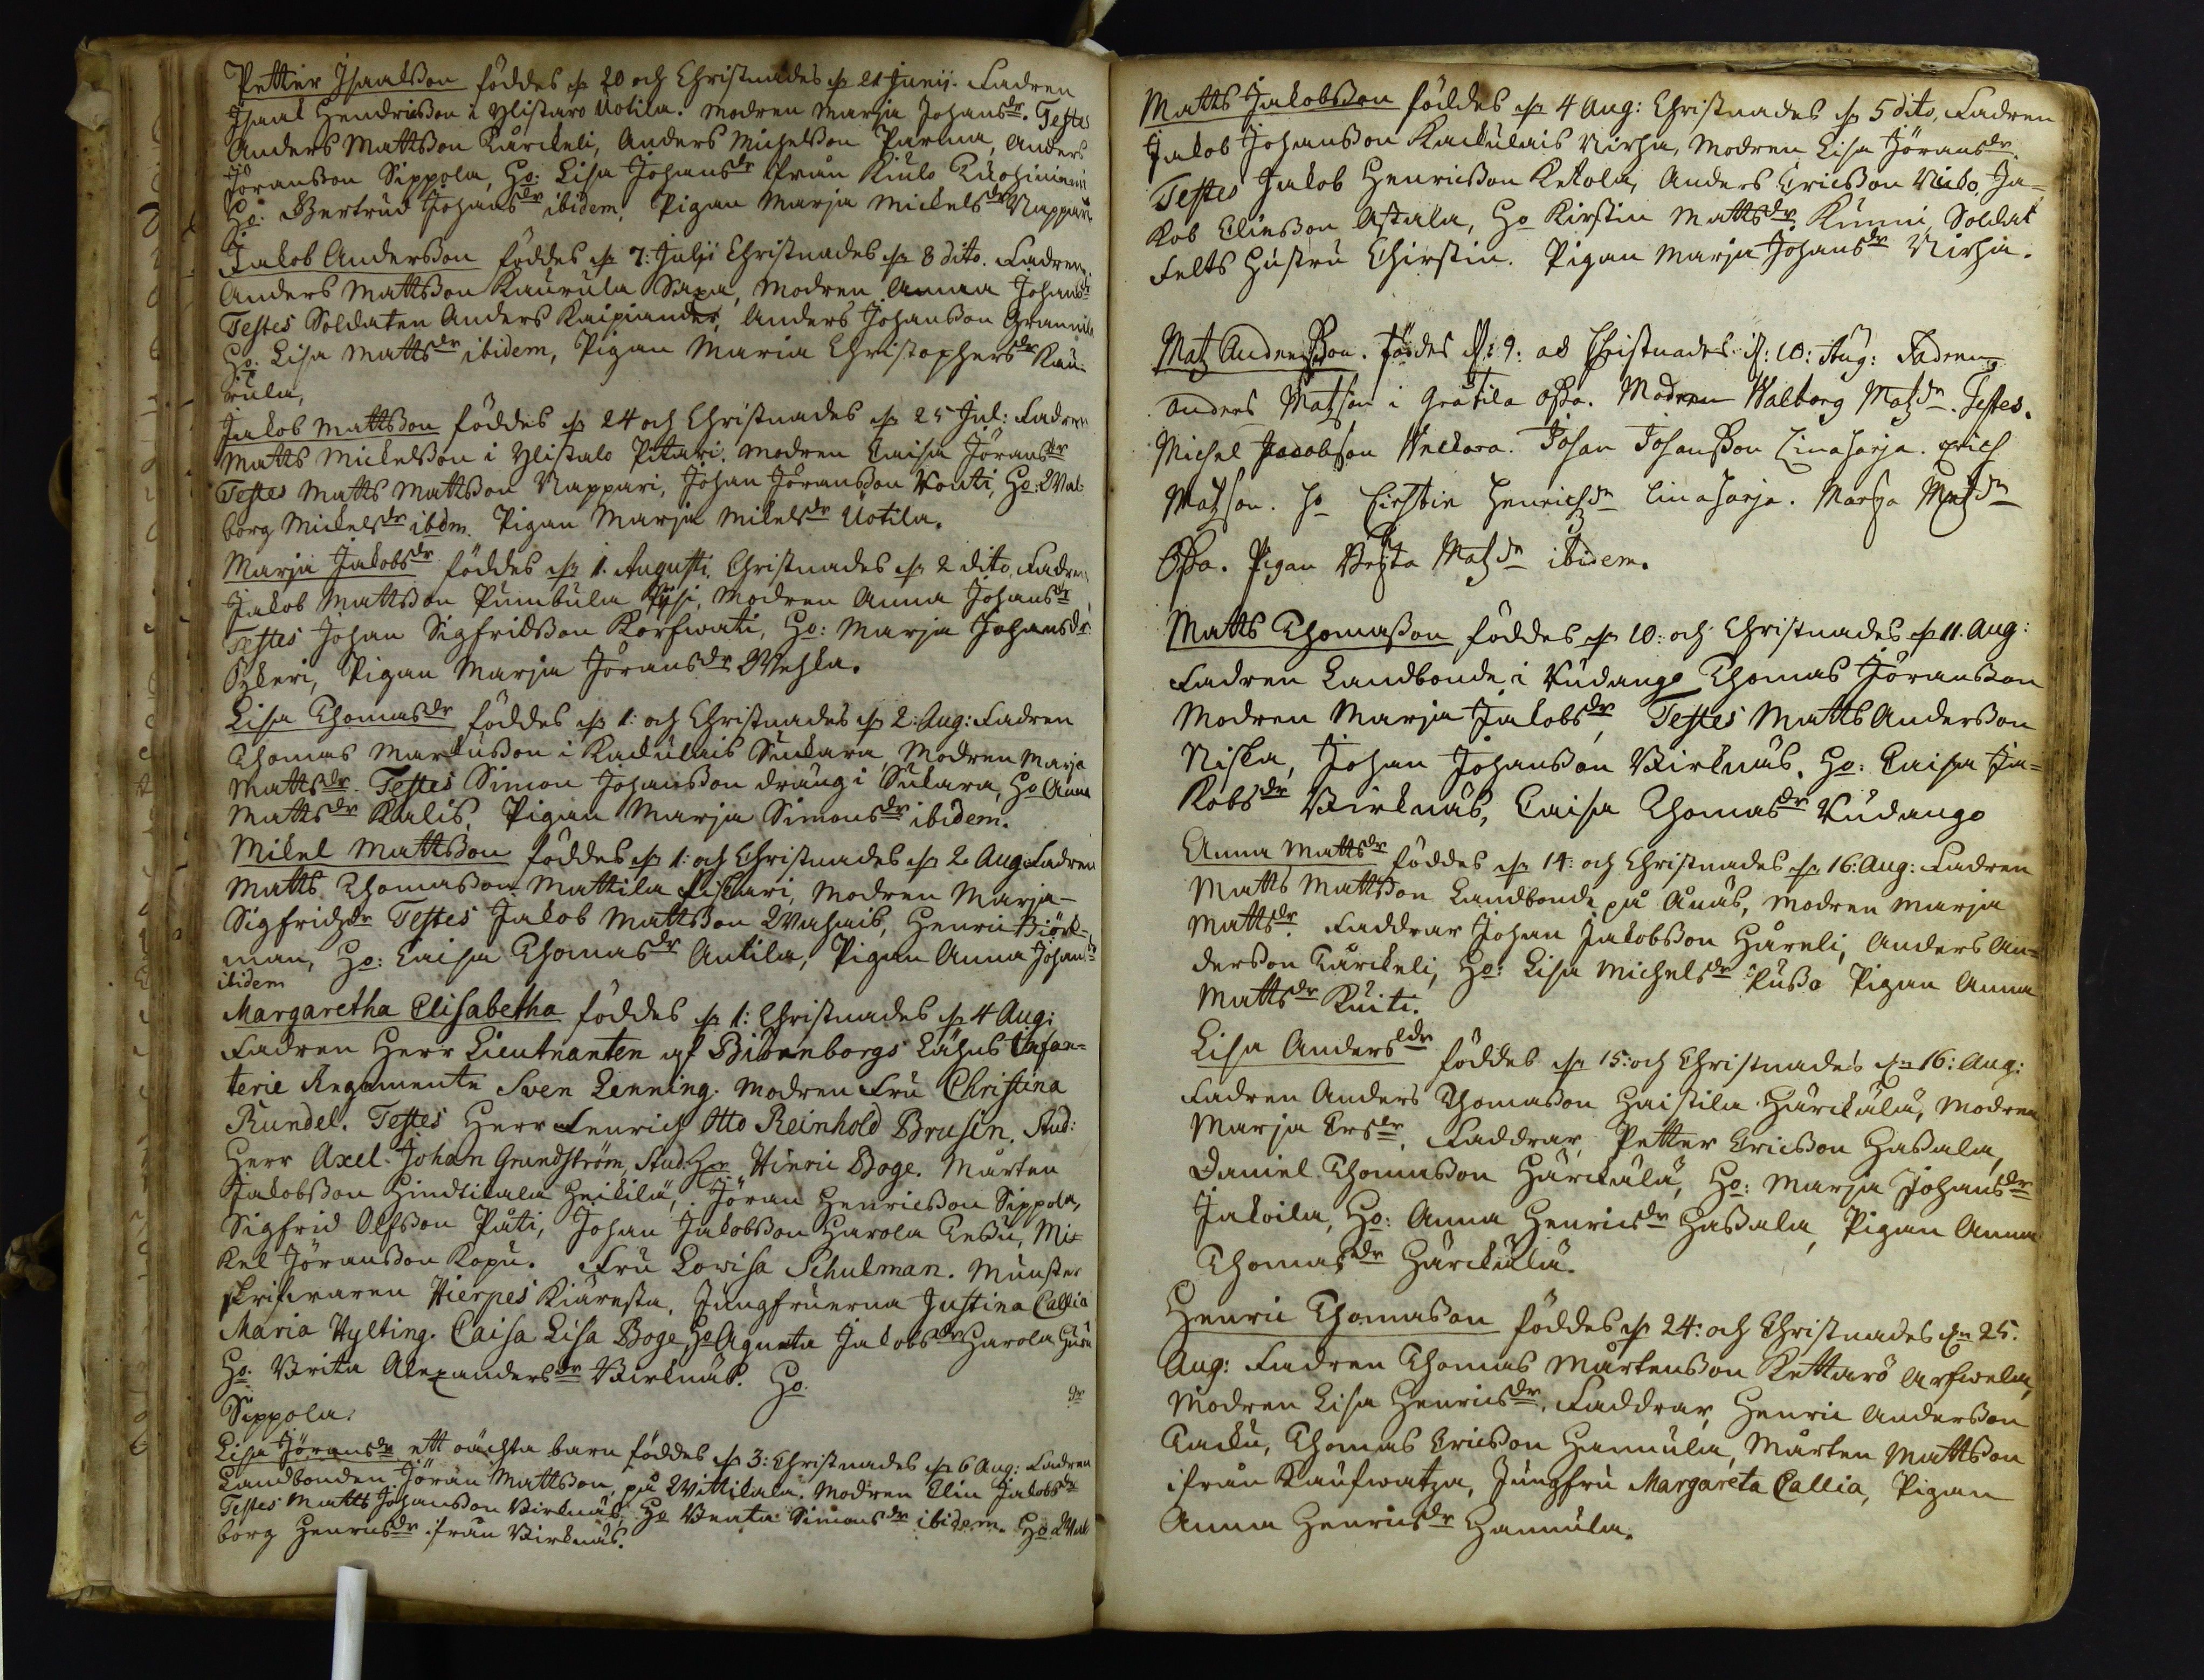 Petter Isaaksson föddes d. 20 och Christnades d. 21 Junii. Fadren
Isaac Hendricsson i Ylistaro Uotila. Modren Marja Johansdr. Testes
Anders Mattsson Kårckeli, Anders Michelsson Parma, Anders
Jöransson Sippola, Ho: Lisa Johansdr från Kiulo
Ho: Gertrud Johansdr ibidem, Pigan Marja Mickelsdr Nappari
Jakob Andersson föddes d. 7: Julii Christnades d. 8 dito. Fadren
Anders Mattsson Kaurula Saxa, Modren Anna Johansdr
Testes Soldaten Anders Kaipiander, Anders Johansson Grannila
Ho: Lisa Mattsdr ibidem, Pigan Maria Christophersdr Kau-
rula,
Jakob Mattsson föddes d. 24 och Christnades d. 25 Jul: Fadren
Matts Mickelsson i Ylistalo Pitari. Modren Caisa Jöransdr
Testes Matts Mattsson Nappari, Johan Jöransson Kouti, Ho: Wal-
borg Mickelsdr ibdm. Pigan Marja Mikelsdr Uotila.
Marja Jakobsdr föddes d. 1. Augusti, Christnades d. 2 dito, Fadren
Jakob Mattsson Pumbula Pysi, Modren Anna Johansdr
Testes Johan Sigfridsson Korfwati, Ho: Marja Johansdr
Pykeri, Pigan Marja Jöransdr Wehka.
Lisa Thomasdr föddes d. 1: och Christnades d. 2: Aug: Fadren
Thomas Markusson i Kackulais Suckara, Modren Marja
Mattsdr. Testes Simon Johansson dräng i Sukara, Ho Anna
Mattsdr Kalis, Pigan Marja Simonsdr ibidem.
Mikel Mattsson föddes d. 1: och Christnades d. 2 Aug: Fadren
Matts Thomasson Mattila Piskari, Modren Marja
Sigfridzdr Testes Jakob Mattsson Wahais, Henric Biörk-
man, Ho: Caisa Thomasdr Antila, Pigan Anna Johansdr
ibidem
Margaretha Elisabetha föddes d. 1: Christnades d. 4 Aug:
Fadren Herr Lieutnanten af Biörneborgs Lähns Infan-
terie Regemente Sven Lenning. Modren Fru Christina
Rundel. Testes Herr Fenrich Otto Reinhold Brusin. Stud:
Herr Axel Johan Grundström, Stud: Hr Hinric Boge. Mårten
Jakobsson Hindtikala Heikilä, Jöran Henricsson Sippola,
Sigfrid Olfsson Puti, Johan Jakobsson Harola Eessu, Mi-
kel Jöransson Kopu. Fru Lovisa Schulman. Munster
skrifwaren Hierpes Kiäresta, Jungfruerna Justina Callia
Maria Hylting. Caisa Lisa Boge, Ho Agneta Jakobsdr Harola
Ho: Brita Alexandersdr Birknäs. Ho. dr
Sippola.
Lisa Jöransdr ett oächta barn föddes d. 3: Christnades d. 6 Aug: Fadren
Landbonden Jöran Mattsson, på Wittikala. Modren Elin Jakobsdr
Testes Matts Johansson Birknäs, Ho Beata Simonsdr ibidem. Ho Wal
borg Henricsdr från Birknäs.
Matts Jakobsson föddes d. 4 Aug: Christnades d. 5 dito, Fadren
Jakob Johansson Kackulais Nirha, Modren Lisa Jöransdr.
Testes Jakob Henricsson Kekola, Anders Ericsson Niuko, Ja-
kob Eliasson Astala, Ho Kirstin Mattsdr Kunni, Soldat
Felts Hustru Chirstin. Pigan Marja Johansdr Nirha.
Matz Andersson. föddes d: 9: oc Christnades d: 10: Aug: Fadren
Anders Matzson i Gråtila Åssa. Modren Walborg Matzdr. Testes.
Michel Jacobson Uckora. Johan Johansson Linaharja. Erich
Matzson. Ho Cirstin Henrichdr Linaharja. Marja Matzdr
Åssa. Pigan Beata Matzdr ibidem.
Matts Thomasson föddes d. 10: och Christnades d. 11. Aug:
Fadren Landbonde i Kudango Thomas Jöransson
Modren Marja Jakobsdr, Testes Matts Andersson
Niska, Johan Johansson Birknäs, Ho: Caisa Ja-
kobsdr Birknäs, Caisa Thomasdr Kudango
Anna Mattsdr föddes d. 14: och Christnades d. 16: Aug: Fadren
Matts Mattsson Landbonde på Anäs, Modren Marja
Mattsdr. Faddrar Johan Jakobsson Håreli, Anders An-
dersson Kårckeli, Ho: Lisa Michelsdr Pusso Pigan Anna
Mattsdr Kuiti.
Lisa Andersdr föddes d. 15: och Christnades d. 16: Aug:
Fadren Anders Thomasson Haistila Härckälä, Modren
Marja Ersdr, Faddrar, Petter Ericsson Hassala,
Daniel Thomasson Härckälä, Ho: Marja Johansdr
Jakoila, Ho: Anna Henricsdr Hassala, Pigan Anna
Thomasdr Härckälä.
Henric Thomasson föddes d. 24: och Christnades d. 25.
Aug: Fadren Thomas Mårtensson Kettarö Arfwela,
Modren Lisa Henricsdr, Faddrar, Henric Andersson
Kacku, Thomas Ericsson Hannula, Mårten Mattsson
ifrån Kaufwatza, Jungfru Margareta Callia, Pigan
Anna Henricsdr Hannula.